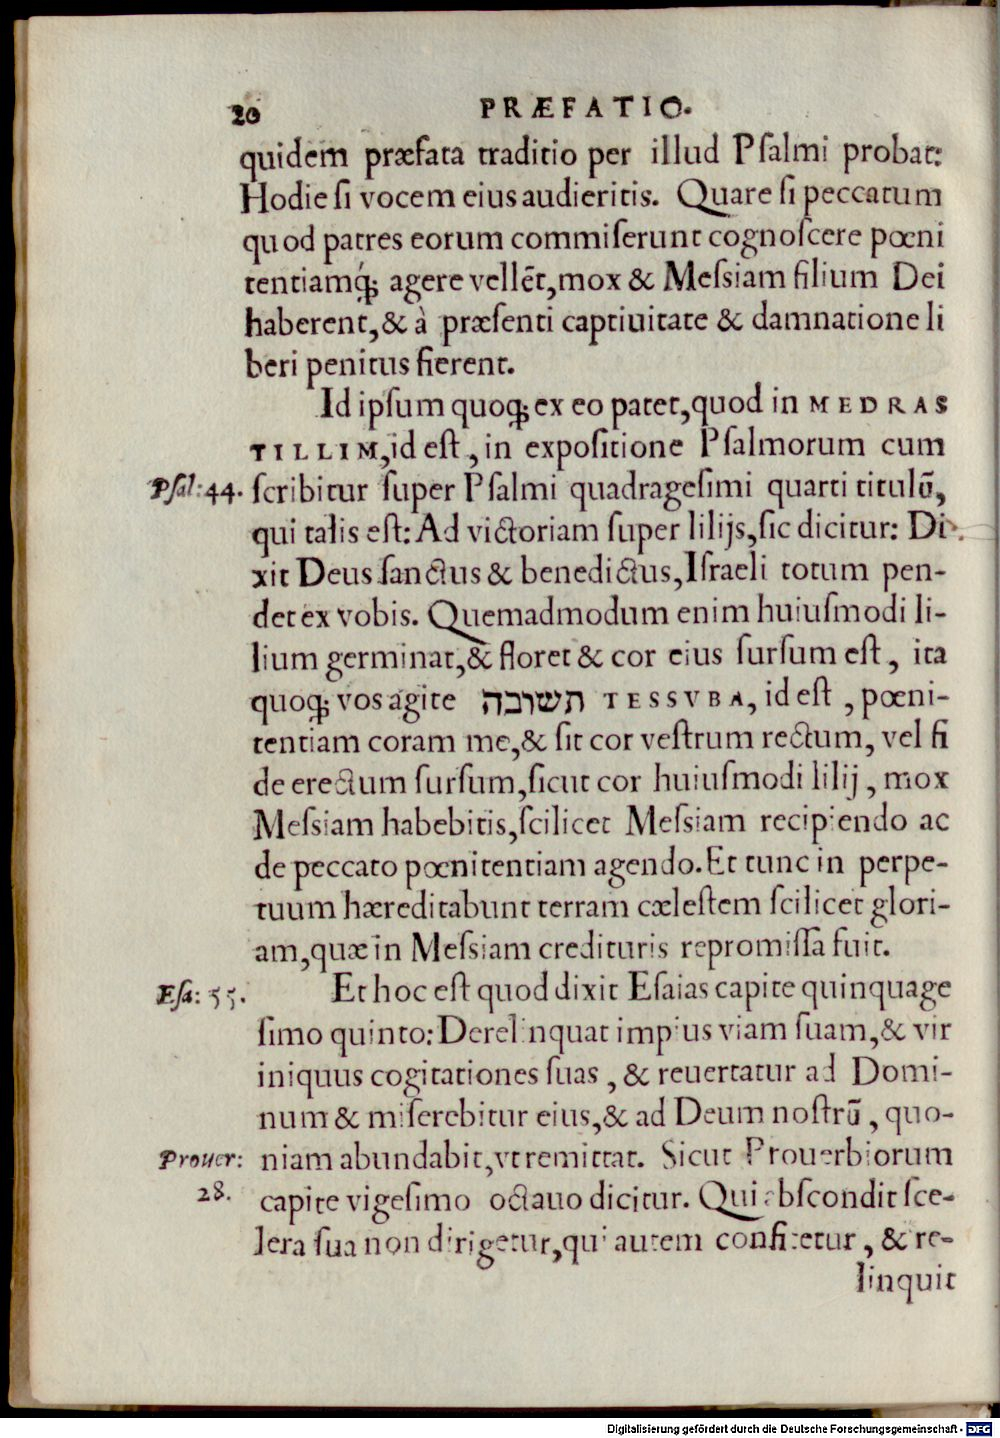 20 PRÆFATIO.
quidem præfata traditio per illud Pſalmi probat:
Hodie ſi vocem eius audieritis. Quare ſi peccatum
quod patres eorum commiſerunt cognoſcere pœni
tentiamq́; agere vellēt, mox & Meſsiam filium Dei
haberent, & à præſenti captiuitate & damnatione li
beri penitus fierent.
Id ipſum quoq; ex eo patet, quod in MEDRAS
TILLIM, id eſt, in expoſitione Pſalmorum cum
Pſal: 44. ſcribitur ſuper Pſalmi quadrageſimi quarti titulū,
qui talis eſt: Ad victoriam ſuper lilijs, ſic dicitur: Di
xit Deus ſanctus & benedictus, Iſraeli totum pen-
det ex vobis. Quemadmodum enim huiuſmodi li-
lium germinat, & floret & cor eius ſurſum eſt, ita
quoq; vos agite תשובה TESSVBA, id eſt, pœni-
tentiam coram me, & ſit cor veſtrum rectum, vel fi
de erectum ſurſum, ſicut cor huiuſmodi lilij, mox
Meſsiam habebitis, ſcilicet Meſsiam recipiendo ac
de peccato pœnitentiam agendo. Et tunc in perpe-
tuum hæreditabunt terram cæleſtem ſcilicet glori-
am, quæ in Meſsiam credituris repromiſſa fuit.
Eſa: 55. Et hoc eſt quod dixit Eſaias capite quinquage
ſimo quinto: Derelinquat impius viam ſuam, & vir
iniquus cogitationes ſuas, & reuertatur ad Domi-
num & miſerebitur eius, & ad Deum noſtrū, quo-
Prouer: niam abundabit, vt remittat. Sicut Prouerbiorum
28. capite vigeſimo octauo dicitur. Qui abſcondit ſce-
lera ſua non dirigetur, qui autem confitetur, & re-
linquit
Digitalisierung gefördert durch die Deutsche Forschungsgemeinschaft - DFG